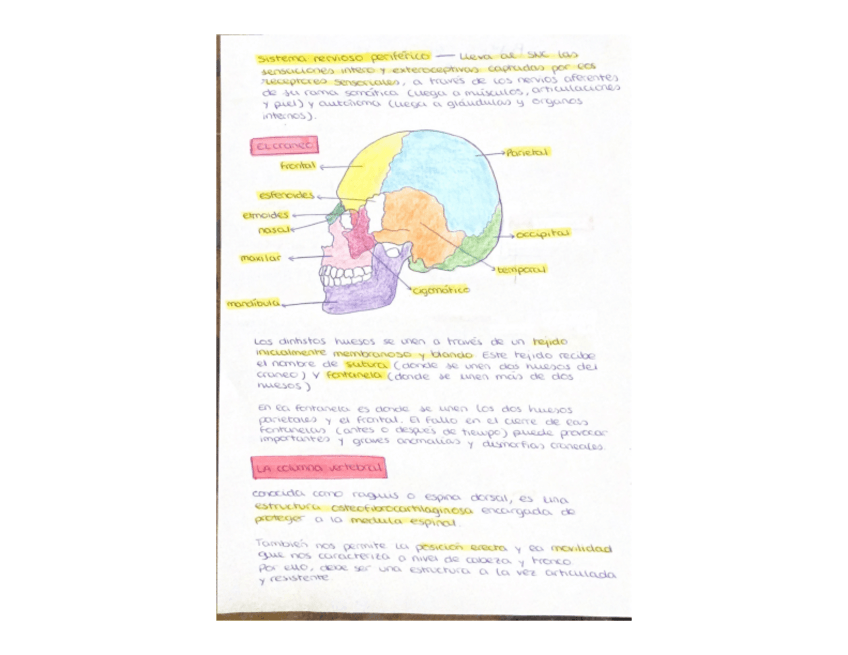 Sistema nervioso periférico — lleva al SNC las
sensaciones intero y exteroceptivas captadas por los
receptores sensoriales, a través de los nervios aferentes
de su rama somática (llega a músculos, articulaciones
y piel) y autónoma (llega a glándulas y organos
internos).
El craneo
frontal
Parietal
esfenoides
etmoides
nasal
occipital
maxilar
temporal
cigomático
mandíbula
Los distintos huesos se unen a través de un tejido
inicialmente membranoso y blando. Este tejido recibe
el nombre de sutura (donde se unen dos huesos del
craneo) y fontanela (donde se unen más de dos
huesos)
En la fontanela es donde se unen los dos huesos
parietales y el frontal. El fallo en el cierre de las
fontanelas (antes o después de tiempo) puede provocar
importantes y graves anomalías y dismorfias craneales.
LA columna vertebral
conocida como raquis o espina dorsal, es una
estructura osteofibrocartilaginosa encargada de
proteger a la medula espinal.
También nos permite la posición erecta y la movilidad
que nos caracteriza a nivel de cabeza y tronco.
Por ello, debe ser una estructura a la vez articulada
y resistente.